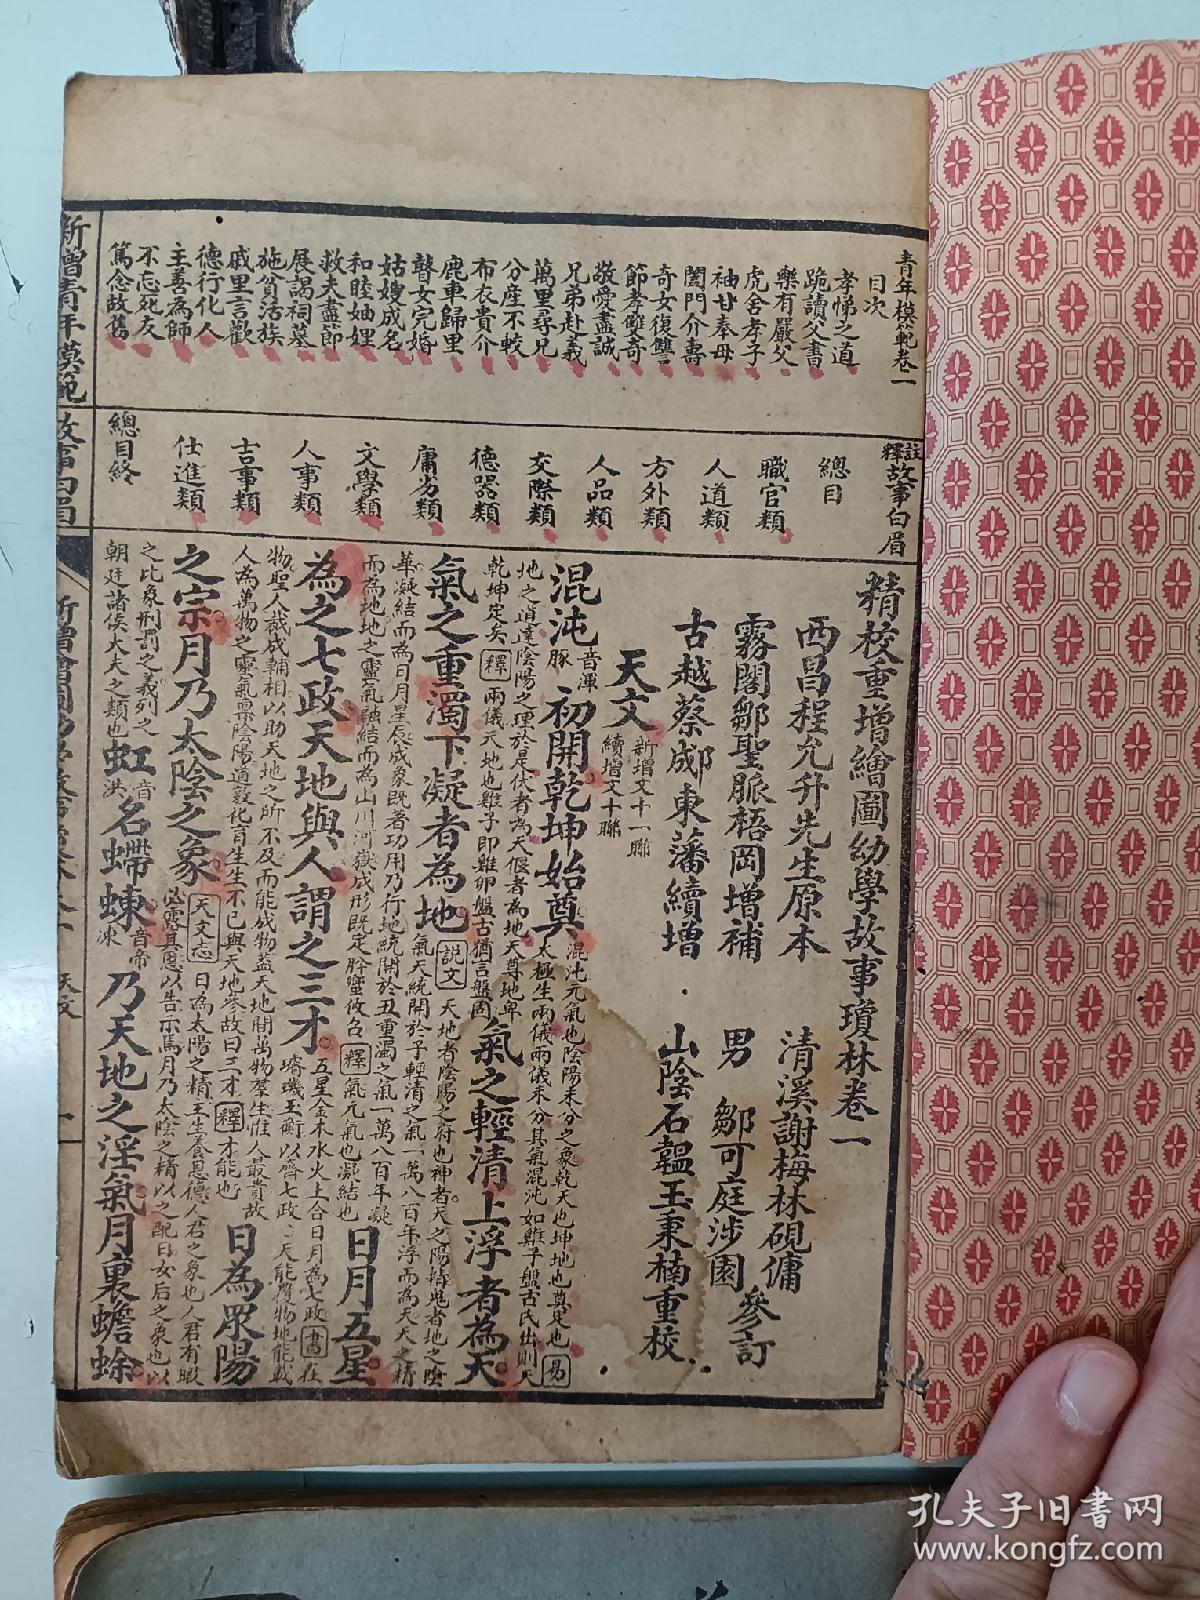 青年模範卷一
目次
孝悌之道
跪讀父書
樂有嚴父
虎舍孝子
袖甘奉母
闔門介壽
奇女復讐
節孝雙奇
敬愛盡誠
兄弟赴義
萬里尋兄
分産不較
布衣貴介
鹿車歸里
瞽女完婚
姑嫂成名
和睦妯娌
救夫盡節
展謁祠墓
施翁活族
戚里言歡
德行化人
主善為師
不忘死友
篤念故舊
註釋故事白眉
總目
職官類
人道類
方外類
人品類
交際類
德器類
庸劣類
文學類
人事類
吉事類
仕進類
總目終
精校重增繪圖幼學故事瓊林卷一
西昌程允升先生原本 清溪謝梅林硯傭
霧閣鄒聖脈梧岡增補 男 鄒可庭涉園 參訂
古越蔡郕東藩續增 山陰石韞玉秉楠重校
天文 新增文十一聯 續增文十聯
混沌 音渾 豚 初開乾坤始奠 混沌元氣也陰陽未分之象乾天也坤地也奠定也 易 太極生兩儀兩儀未分其氣混沌如雞子盤古氏出則天
地之道達陰陽之理於是伏者為天偃者為地天尊地卑 乾坤定矣 釋 兩儀天地也雞子即雞卵盤古猶言盤固 氣之輕清上浮者為天
氣之重濁下凝者為地 說文 天地者陰陽之府也神者天之陽精鬼者地之陰 氣天統開於子輕清之氣一萬八百年浮而為天天之精
華凝結而為日月星辰成象既著功用乃行地統開於丑重濁之氣一萬八百年凝 而為地地之靈氣融結而為山川河嶽成形既定 釋 氣元氣也凝結也 日月五星
為之七政天地與人謂之三才 五星金木水火土合日月為七政 書 在 璿璣玉衡以齊七政 天能覆物地能載
物聖人裁成輔相以助天地之所不及而能成物蓋天地開萬物羣生惟人最貴故 人為萬物之靈氣禀陰陽道敦化育生生不已與天地參故曰三才 釋 才能也 日為眾陽
之宗月乃太陰之象 天文志 日為太陽之精主生養恩德人君之象也人君有瑕 必露其慝以告示焉月乃太陰之精以之配日女后之象也以
之比象刑罰之義列之 朝廷諸侯大夫之類也 虹 音 洪 名螮蝀 音帝 凍 乃天地之淫氣月裏蟾蜍
新增青年模範 故事白眉
天文
孔夫子旧书网
www.kongfz.com